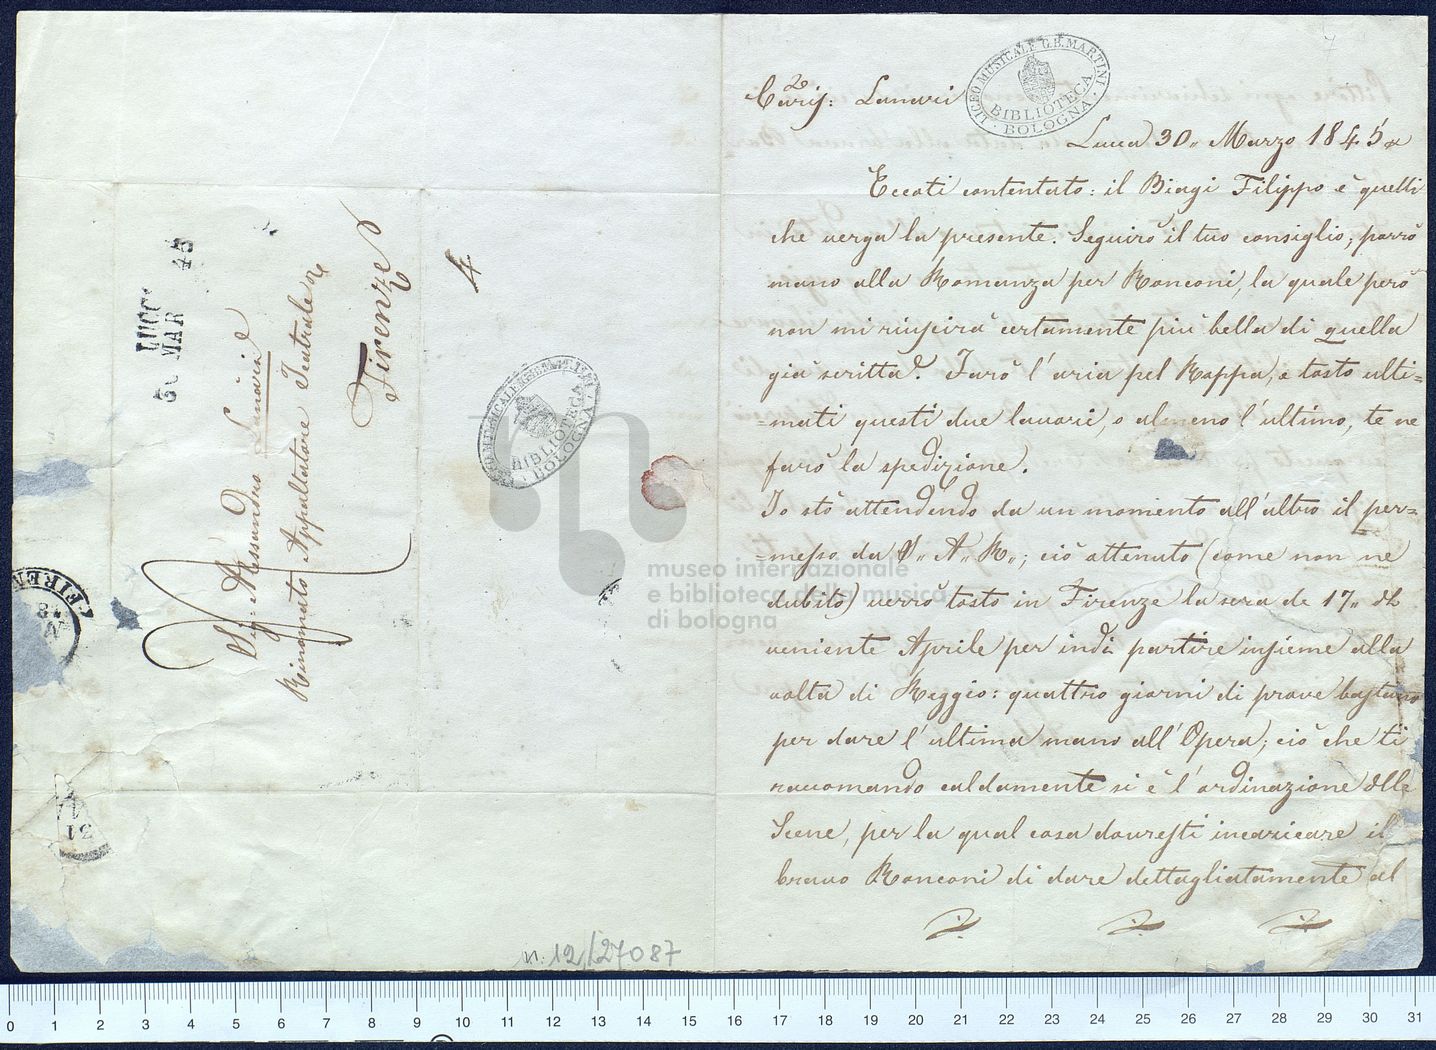 Sig: Alessandro Lanari
Rinomato Appaltatore Teatrale
Firenze
4
LUCC
30 MAR 45
LICEO MUSICALE G.B. MARTINI
BIBLIOTECA
BOLOGNA
FIREN
31
n. 12/27087
7
Cariss: Lanari
LICEO MUSICALE G.B. MARTINI
BIBLIOTECA
BOLOGNA
Lucca 30,, Marzo 1845
Eccoti contentato: il Biagi Filippo è quelli
che verga la presente. Seguirò il tuo consiglio; porrò
mano alla Romanza per Ronconi, la quale però
non mi riuscirà certamente più bella di quella
già scritta. Farò l'aria pel Rappa, e tosto ulti=
=mati questi due lavori, o almeno l'ultimo, te ne
farò la spedizione.
Io stò attendendo da un momento all'altro il per=
=messo da S,, A,, R,,; ciò ottenuto (come non ne
dubito) verrò tosto in Firenze la sera de 17,,
veniente Aprile per indi partire insieme alla
volta di Reggio: quattro giorni di prove bastano
per dare l'ultima mano all'Opera; ciò che ti
raccomando caldamente si è l'ordinazione dlle
Scene, per la qual cosa dovresti incaricare il
bravo Ronconi di dare dettagliatamente al
museo internazionale
e biblioteca della musica
di bologna
0 1 2 3 4 5 6 7 8 9 10 11 12 13 14 15 16 17 18 19 20 21 22 23 24 25 26 27 28 29 30 31